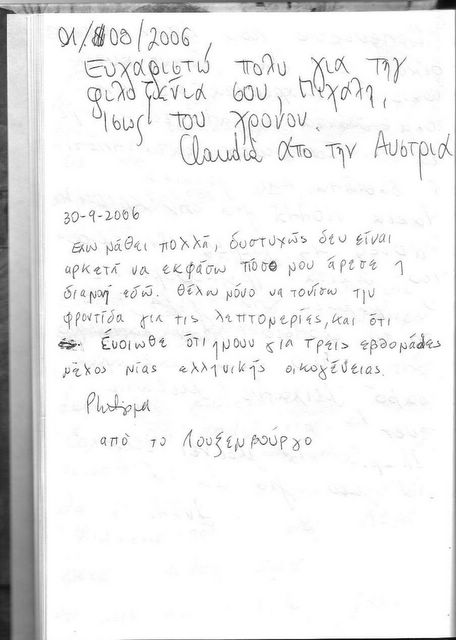 01/09/2006
Ευχαριστώ πολυ για την
φιλοξένια σου, Μιχαλη,
Ισως του χρονου.
Claudia απο την Αυστρια
30-9-2006
Εχω μάθει πολλά, δυστυχώς δεν είναι
αρκετά να εκφάσω πόσο μου άρεσε η
διαμονή εδώ. Θέλω μόνο να τονίσω την
φροντίδα για τις λεπτομερίες, και ότι
Ένοιωθε ότι ημουν για τρεις εβδομάδες
μέλος μίας ελληνικής οικογένειας.
από το Λουξεμβούργο